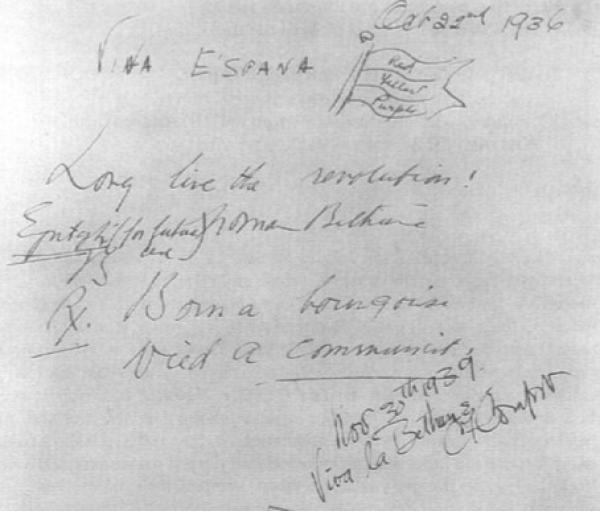 Oct 22nd 1936
VIVA ESPANA
Red
Yellow
Purple
Long live the revolution!
(for future use) Norman Bethune
Rx. Born a bourgoise
Died a communist.
Nov 30th 1939.
Viva la Bethune